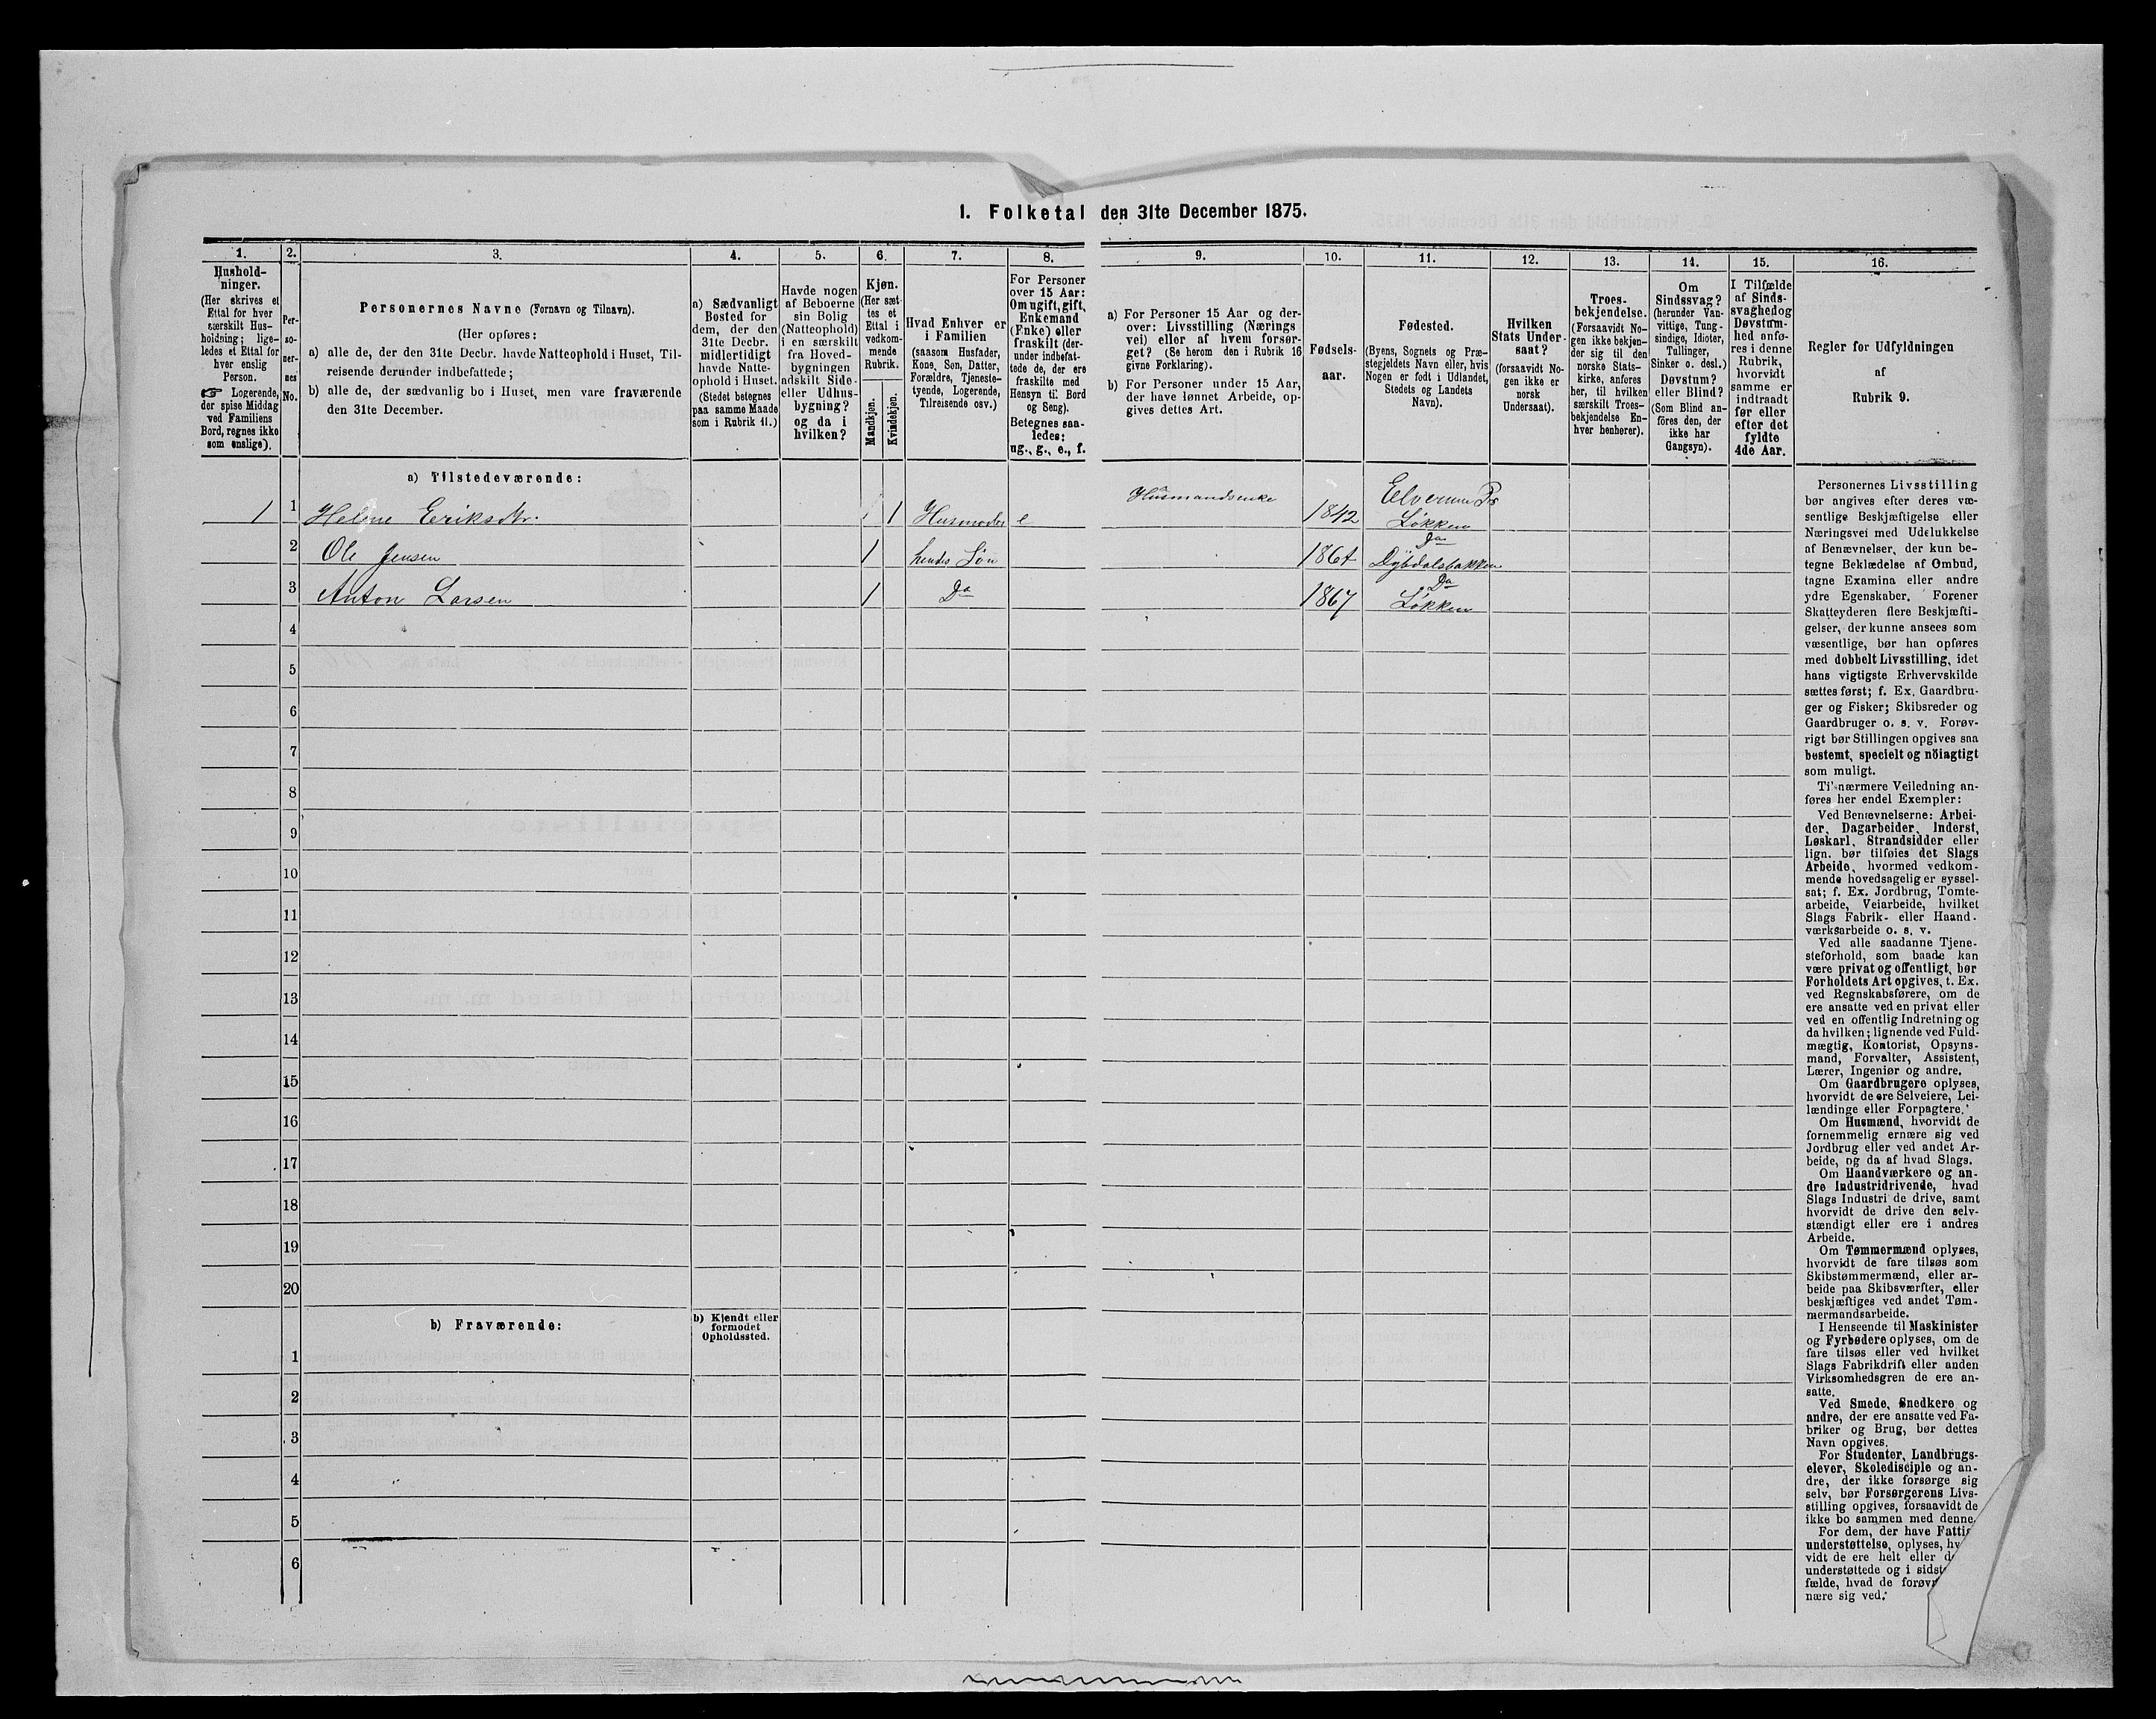 1. Folketal den 31te December 1875.
1.
Hushold-
ninger.
(Her skrives et
Ettal for hver
særskilt Hus-
holdning; lige-
ledes et Ettal for
hver enslig
Person.
☞ Logerende,
der spise Middag
ved Familiens
Bord, regnes ikke
som enslige).
2.
Per-
so-
ner-
nes
No.
3.
Personernes Navne (Fornavn og Tilnavn).
(Her opføres:
a) alle de, der den 31te Decbr. havde Natteophold i Huset, Til-
reisende derunder indbefattede;
b) alle de, der sædvanlig bo i Huset, men vare fraværende
den 31te December.
4.
a) Sædvanligt
Bosted for
dem, der den
31te Decbr.
midlertidigt
havde Natte-
ophold i Huset.
(Stedet betegnes
paa samme Maade
som i Rubrik 11.)
5.
Havde nogen
af Beboerne
sin Bolig
(Natteophold)
i en særskilt
fra Hoved-
bygningen
adskilt Side-
eller Udhus-
bygning?
og da i
hvilken?
6.
Kjøn.
(Her sæt-
tes et
Ettal i
vedkom-
mende
Rubrik.
Mandkjøn.
Kvindekjøn.
7.
Hvad Enhver er
i Familien
(saasom Husfader,
Kone, Søn, Datter,
Forældre, Tjeneste-
tyende, Logerende,
Tilreisende osv.)
8.
For Personer
over 15 Aar:
Om ugift, gift,
Enkemand
(Enke) eller
fraskilt (der-
under indbefat-
tede de, der ere
fraskilte med
Hensyn til Bord
og Seng).
Betegnes saa-
ledes:
ug., g., e., f.
9.
a) For Personer 15 Aar og der-
over: Livsstilling (Nærings
vei) eller af hvem forsør-
get? (Se herom den i Rubrik 16
givne Forklaring).
b) For Personer under 15 Aar,
der have lønnet Arbeide, op-
gives dettes Art.
10.
Fødsels-
aar.
11.
Fødested.
(Byens, Sognets og Præ-
stegjeldets Navn eller, hvis
Nogen er født i Udlandet,
Stedets og Landets
Navn).
12.
Hvilken
Stats Under-
saat?
(forsaavidt No-
gen ikke er
norsk
Undersaat).
13.
Troes-
bekjendelse.
(Forsaavidt No-
gen ikke bekjen-
der sig til den
norske Stats-
kirke, anføres
her, til hvilken
særskilt Troes-
bekjendelse En-
hver henhører).
14.
Om
Sindssvag?
(herunder Van-
vittige, Tung-
sindige, Idioter,
Tullinger,
Sinker o. desl.)
Døvstum?
eller Blind?
(Som Blind an-
føres den, der
ikke har
Gangsyn).
15.
I Tilfælde
af Sinds-
svaghed og
Døvstum-
hed anfø-
res i denne
Rubrik,
hvorvidt
samme er
indtraadt
før eller
efter det
fyldte
4de Aar.
16.
Regler for Udfyldningen
af
Rubrik 9.
a) Tilstedeværende:
1 1 Helene Eriksdtr. 1 Husmoder e Husmandsenke 1842 Elverum Pr
Løkken
2 Ole Jensen 1 hendes Søn 1864 Do
Dybdalsbakken
3 Anton Larsen 1 Do 1867 Do
Løkken
4
5
6
7
8
9
10
11
12
13
14
15
16
17
18
19
20
b) Fraværende:
b) Kjendt eller
formodet
Opholdssted.
1
2
3
4
5
6
Personernes Livsstilling
bør angives efter deres væ-
sentlige Beskjæftigelse eller
Næringsvei med Udelukkelse
af Benævnelser, der kun be-
tegne Beklædelse af Ombud,
tagne Examina eller andre
ydre Egenskaber. Forener
Skatteyderen flere Beskjæfti-
gelser, der kunne ansees som
væsentlige, bør han opføres
med dobbelt Livsstilling, idet
hans vigtigste Erhvervskilde
sættes først; f. Ex. Gaardbru-
ger og Fisker; Skibsreder og
Gaardbruger o. s. v. Forøv-
rigt bør Stillingen opgives saa
bestemt, specielt og nöiagtigt
som muligt.
Til nærmere Veiledning an-
føres her endel Exempler:
Ved Benævnelserne: Arbei-
der, Dagarbeider, Inderst,
Løskarl, Strandsidder eller
lign. bør tilføies det Slags
Arbeide, hvormed vedkom-
mende hovedsagelig er syssel-
sat; f. Ex. Jordbrug, Tomte-
arbeide, Veiarbeide, hvilket
Slags Fabrik- eller Haand-
værksarbeide o. s. v.
Ved alle saadanne Tjene-
steforhold, som baade kan
være privat og offentligt, bør
Forholdets Art opgives, t. Ex.
ved Regnskabsførere, om de
ere ansatte ved en privat eller
ved en offentlig Indretning og
da hvilken; lignende ved Fuld-
mægtig, Kontorist, Opsyns-
mand, Forvalter, Assistent,
Lærer, Ingeniør og andre.
Om Gaardbrugere oplyses,
hvorvidt de ere Selveiere, Lei-
lændinge eller Forpagtere.
Om Husmænd, hvorvidt de
fornemmelig ernære sig ved
Jordbrug eller ved andet Ar-
beide, og da af hvad Slags.
Om Haandværkere og an-
dre Industridrivende, hvad
Slags Industri de drive, samt
hvorvidt de drive den selv-
stændigt eller ere i andres
Arbeide.
Om Tømmermænd oplyses,
hvorvidt de fare tilsøs som
Skibstømmermænd, eller ar-
beide paa Skibsværfter, eller
beskjæftiges ved andet Tøm-
mermandsarbeide.
I Henseende til Maskinister
og Fyrbødere oplyses, om de
fare tilsøs eller ved hvilket
Slags Fabrikdrift eller anden
Virksomhedsgren de ere an-
satte.
Ved Smede, Snedkere og
andre, der ere ansatte ved Fa-
briker og Brug, bør dettes
Navn opgives.
For Studenter, Landbrugs-
elever, Skoledisciple og an-
dre, der ikke forsørge sig
selv, bør Forsørgerens Livs-
stilling opgives, forsaavidt de
ikke bo sammen med denne.
For dem, der have Fattig
understøttelse, oplyses, hv
vidt de ere helt eller d
understøttede og i sidst
fælde, hvad de forøv
nære sig ved.